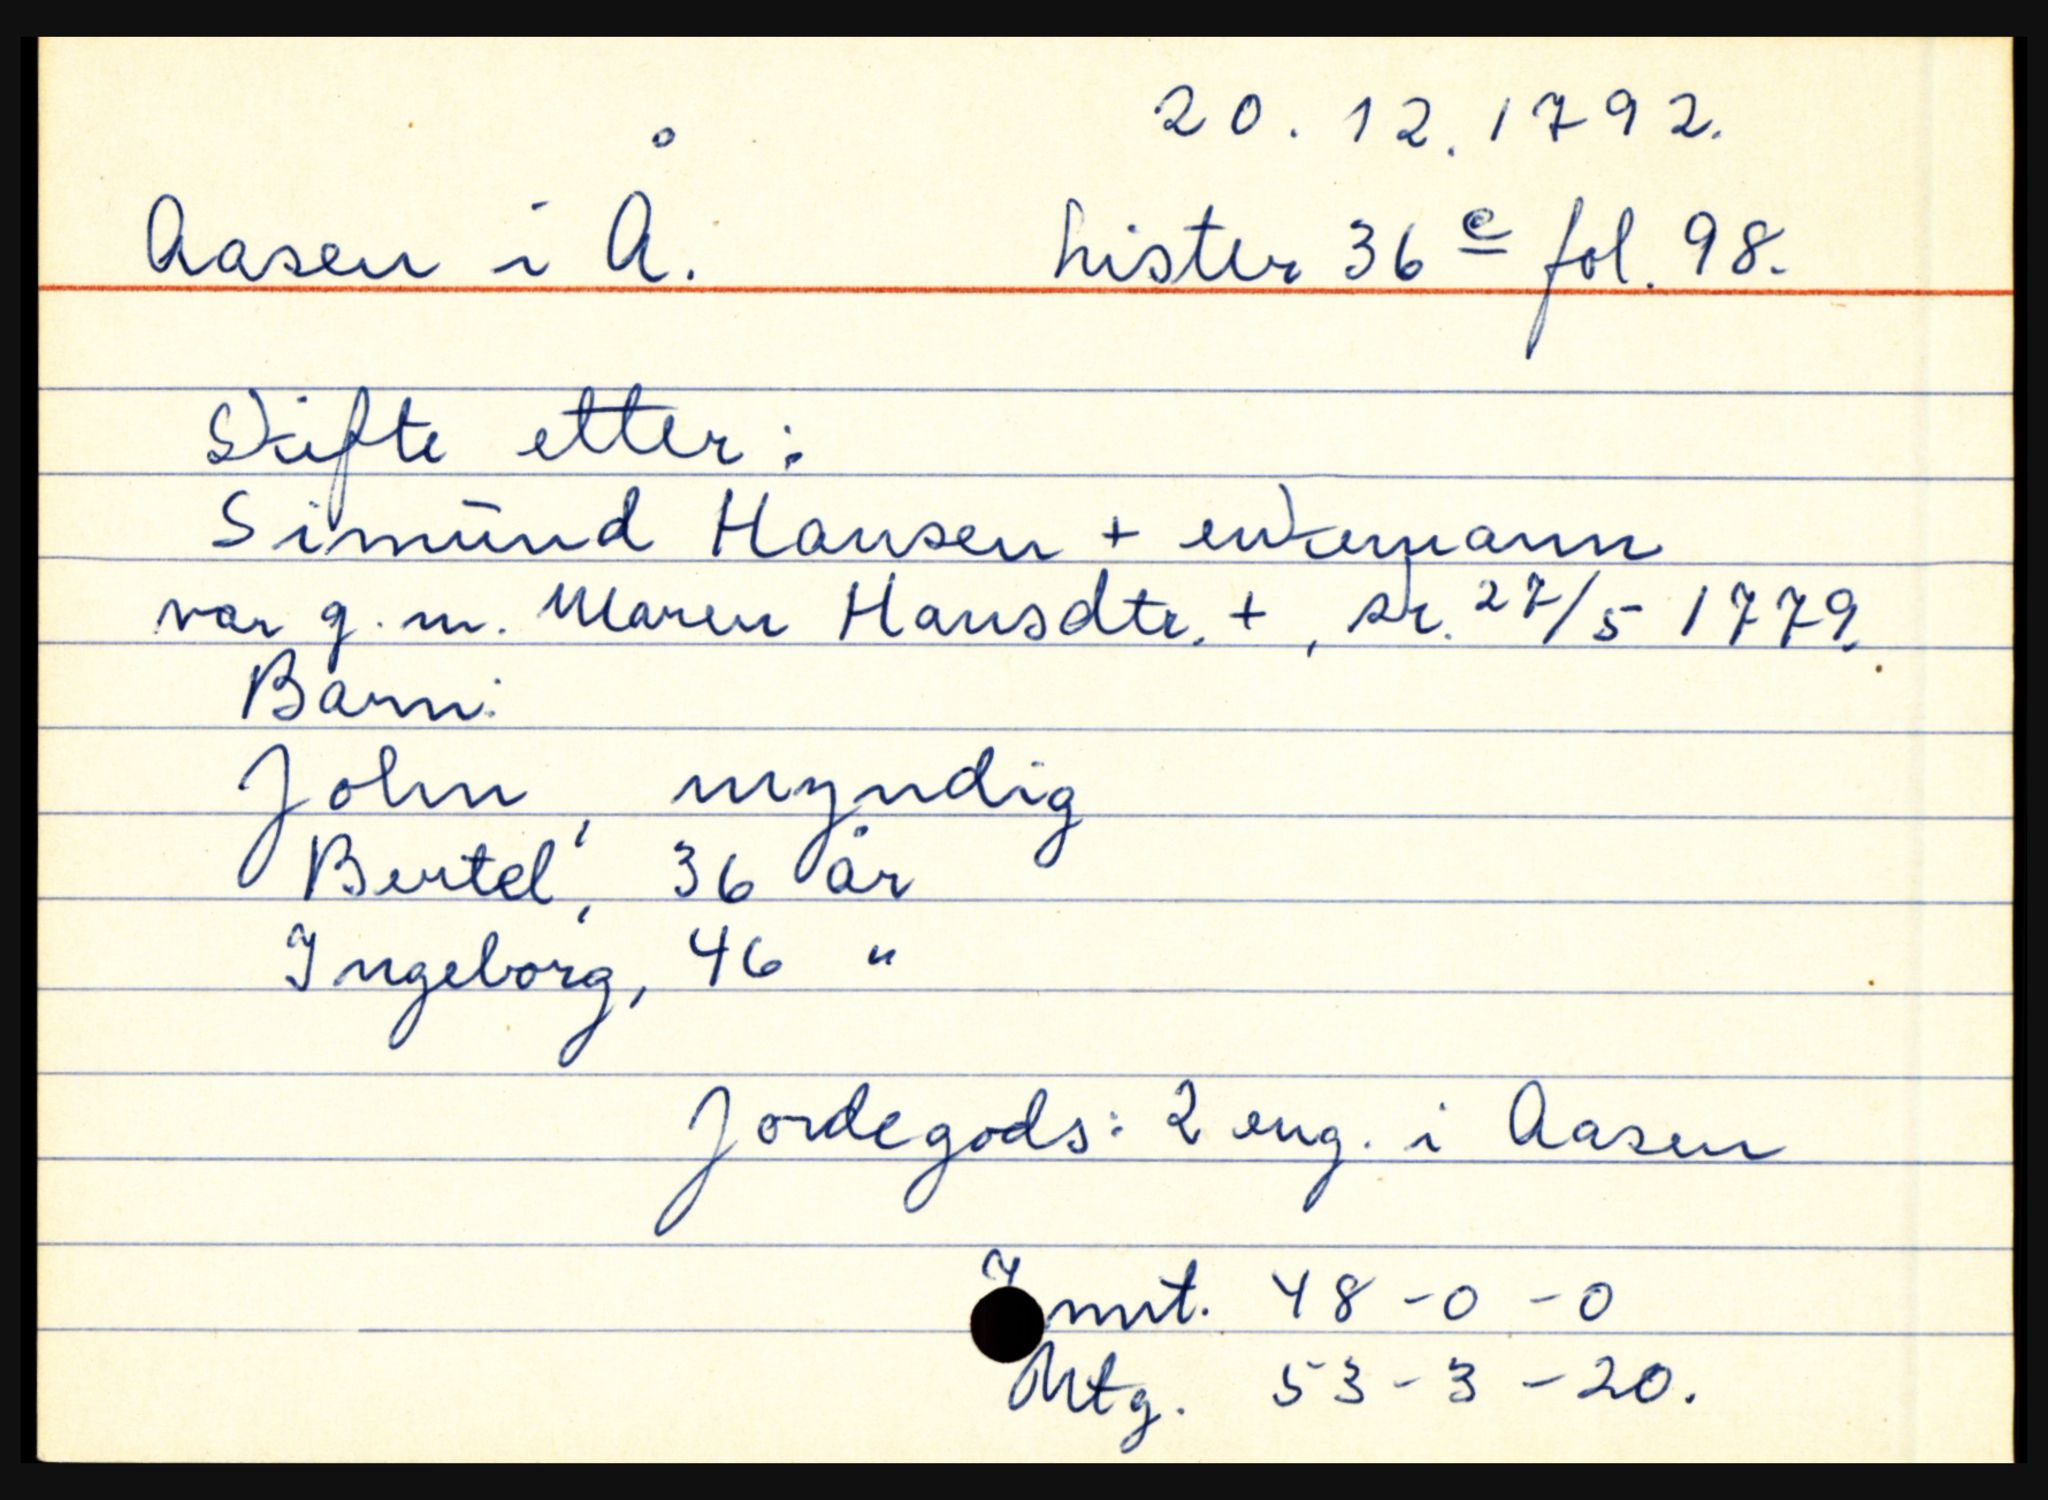 20.12.1792.
Aasen i Å. Lister 36 c fol. 98.
Skifte etter:
Simund Hansen + enkemann
var g.m. Maren Hansdtr. +, sk. 27/5 1779.
Barn:
John, myndig
Bertel, 36 år
Ingeborg, 46 "
Jordegods: 2 eng. i Aasen
Innt. 48-0-0
Utg. 53-3-20.